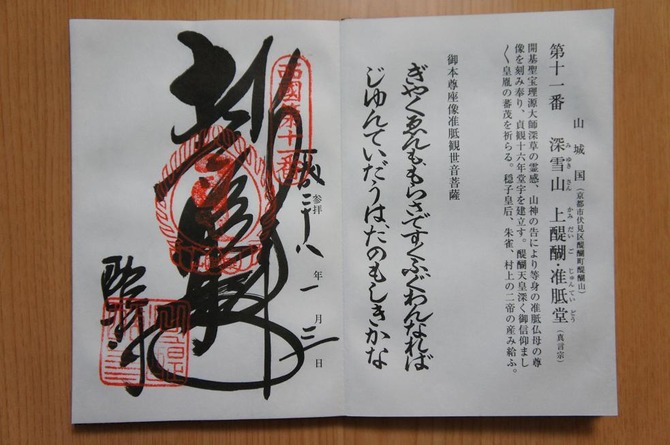 山城国（京都市伏見区醍醐町醍醐山）
第十一番 深雪山 上醍醐・准胝堂（真言宗）
みゆきさん かみだいご じゅんていどう
開基聖宝理源大師深草の霊感、山神の告により等身の准胝仏母の尊
像を刻み奉り、貞観十六年堂宇を建立す。醍醐天皇深く御信仰まし
〱皇胤の蕃茂を祈らる。穏子皇后、朱雀、村上の二帝の産み給ふ。
御本尊座像准胝観世音菩薩
ぎやくゑんももらさですくふぐわんなれば
じゆんていだうはたのもしきかな
西國第十一番
平成二十八年一月三日
参拝
醍醐寺